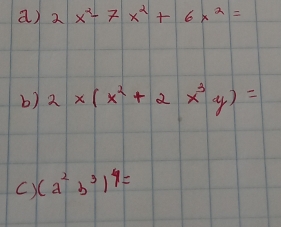 a) 2 x² - 7 x² + 6 x² =
b) 2 x (x² + 2 x³ y) =
c) (a² b³)⁴ =